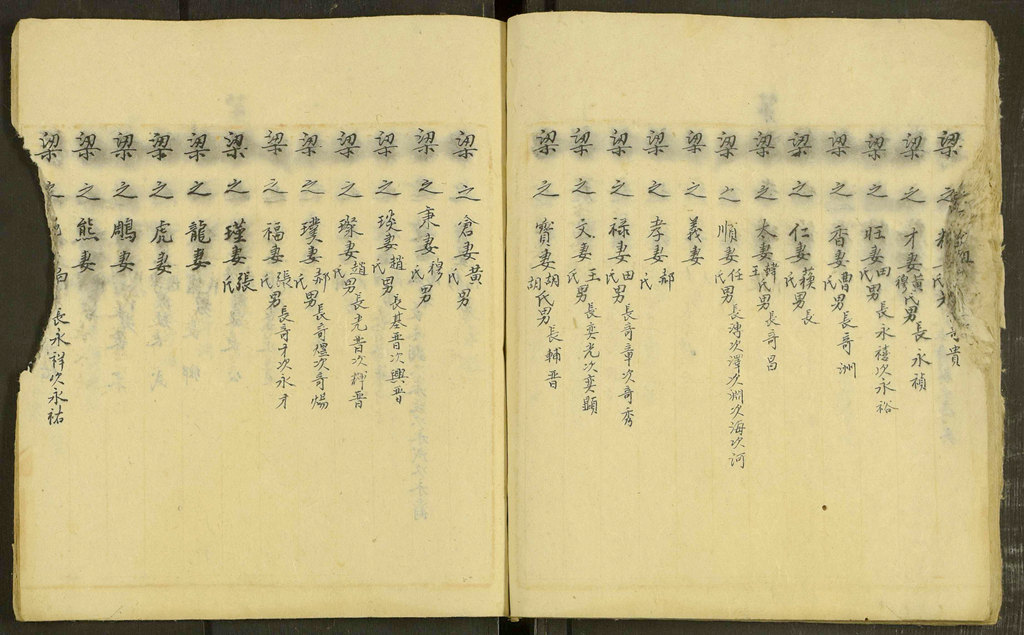 梁之 妻 氏男 貴
梁之才妻黃穆氏男長永禎
梁之旺妻田氏男長永禧次永裕
梁之香妻曹氏男長哥洲
梁之仁妻氏男長
梁之太妻韓王氏男長哥昌
梁之順妻任氏男長濤次澤次淵次海次河
梁之義妻
梁之孝妻郝氏
梁之祿妻田氏男長哥童次哥秀
梁之文妻王氏男長奕光次奕顯
梁之寶妻胡胡氏男長輔晋
梁之倉妻黃氏男
梁之秉妻穆氏男
梁之琰妻趙氏男長基晋次興晋
梁之璨妻趙氏男長光晋次輝晋
梁之璞妻郝氏男長哥煋次哥煬
梁之福妻張氏男長哥才次永才
梁之瑾妻張氏
梁之龍妻
梁之虎妻
梁之鵰妻
梁之熊妻
梁之 長永祥次永祐